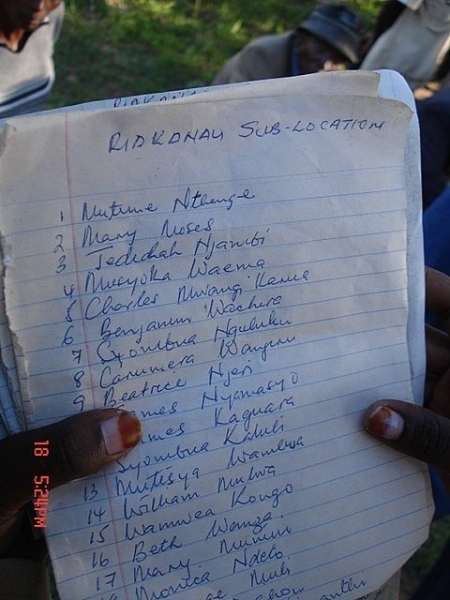 RIAKANAU SUB-LOCATION
1 Mutune Nthenge
2 Mary Moses
3 Jedidah Njambi
4 Musyoka Waema
5 Charles Mwangi Kania
6 Benjamin Wachira
7 Syombua Nguluku
8 Wanjiru
9 Beatrice Njeri
James Nyamasyo
James Kaguara
Syombua Kaluli
13 Mutisya Wambua
14 William Mulwa
15 Wamwea Kongo
16 Beth Wanza
17 Mary Mumini
Monica Ndeto
18 5:24PM